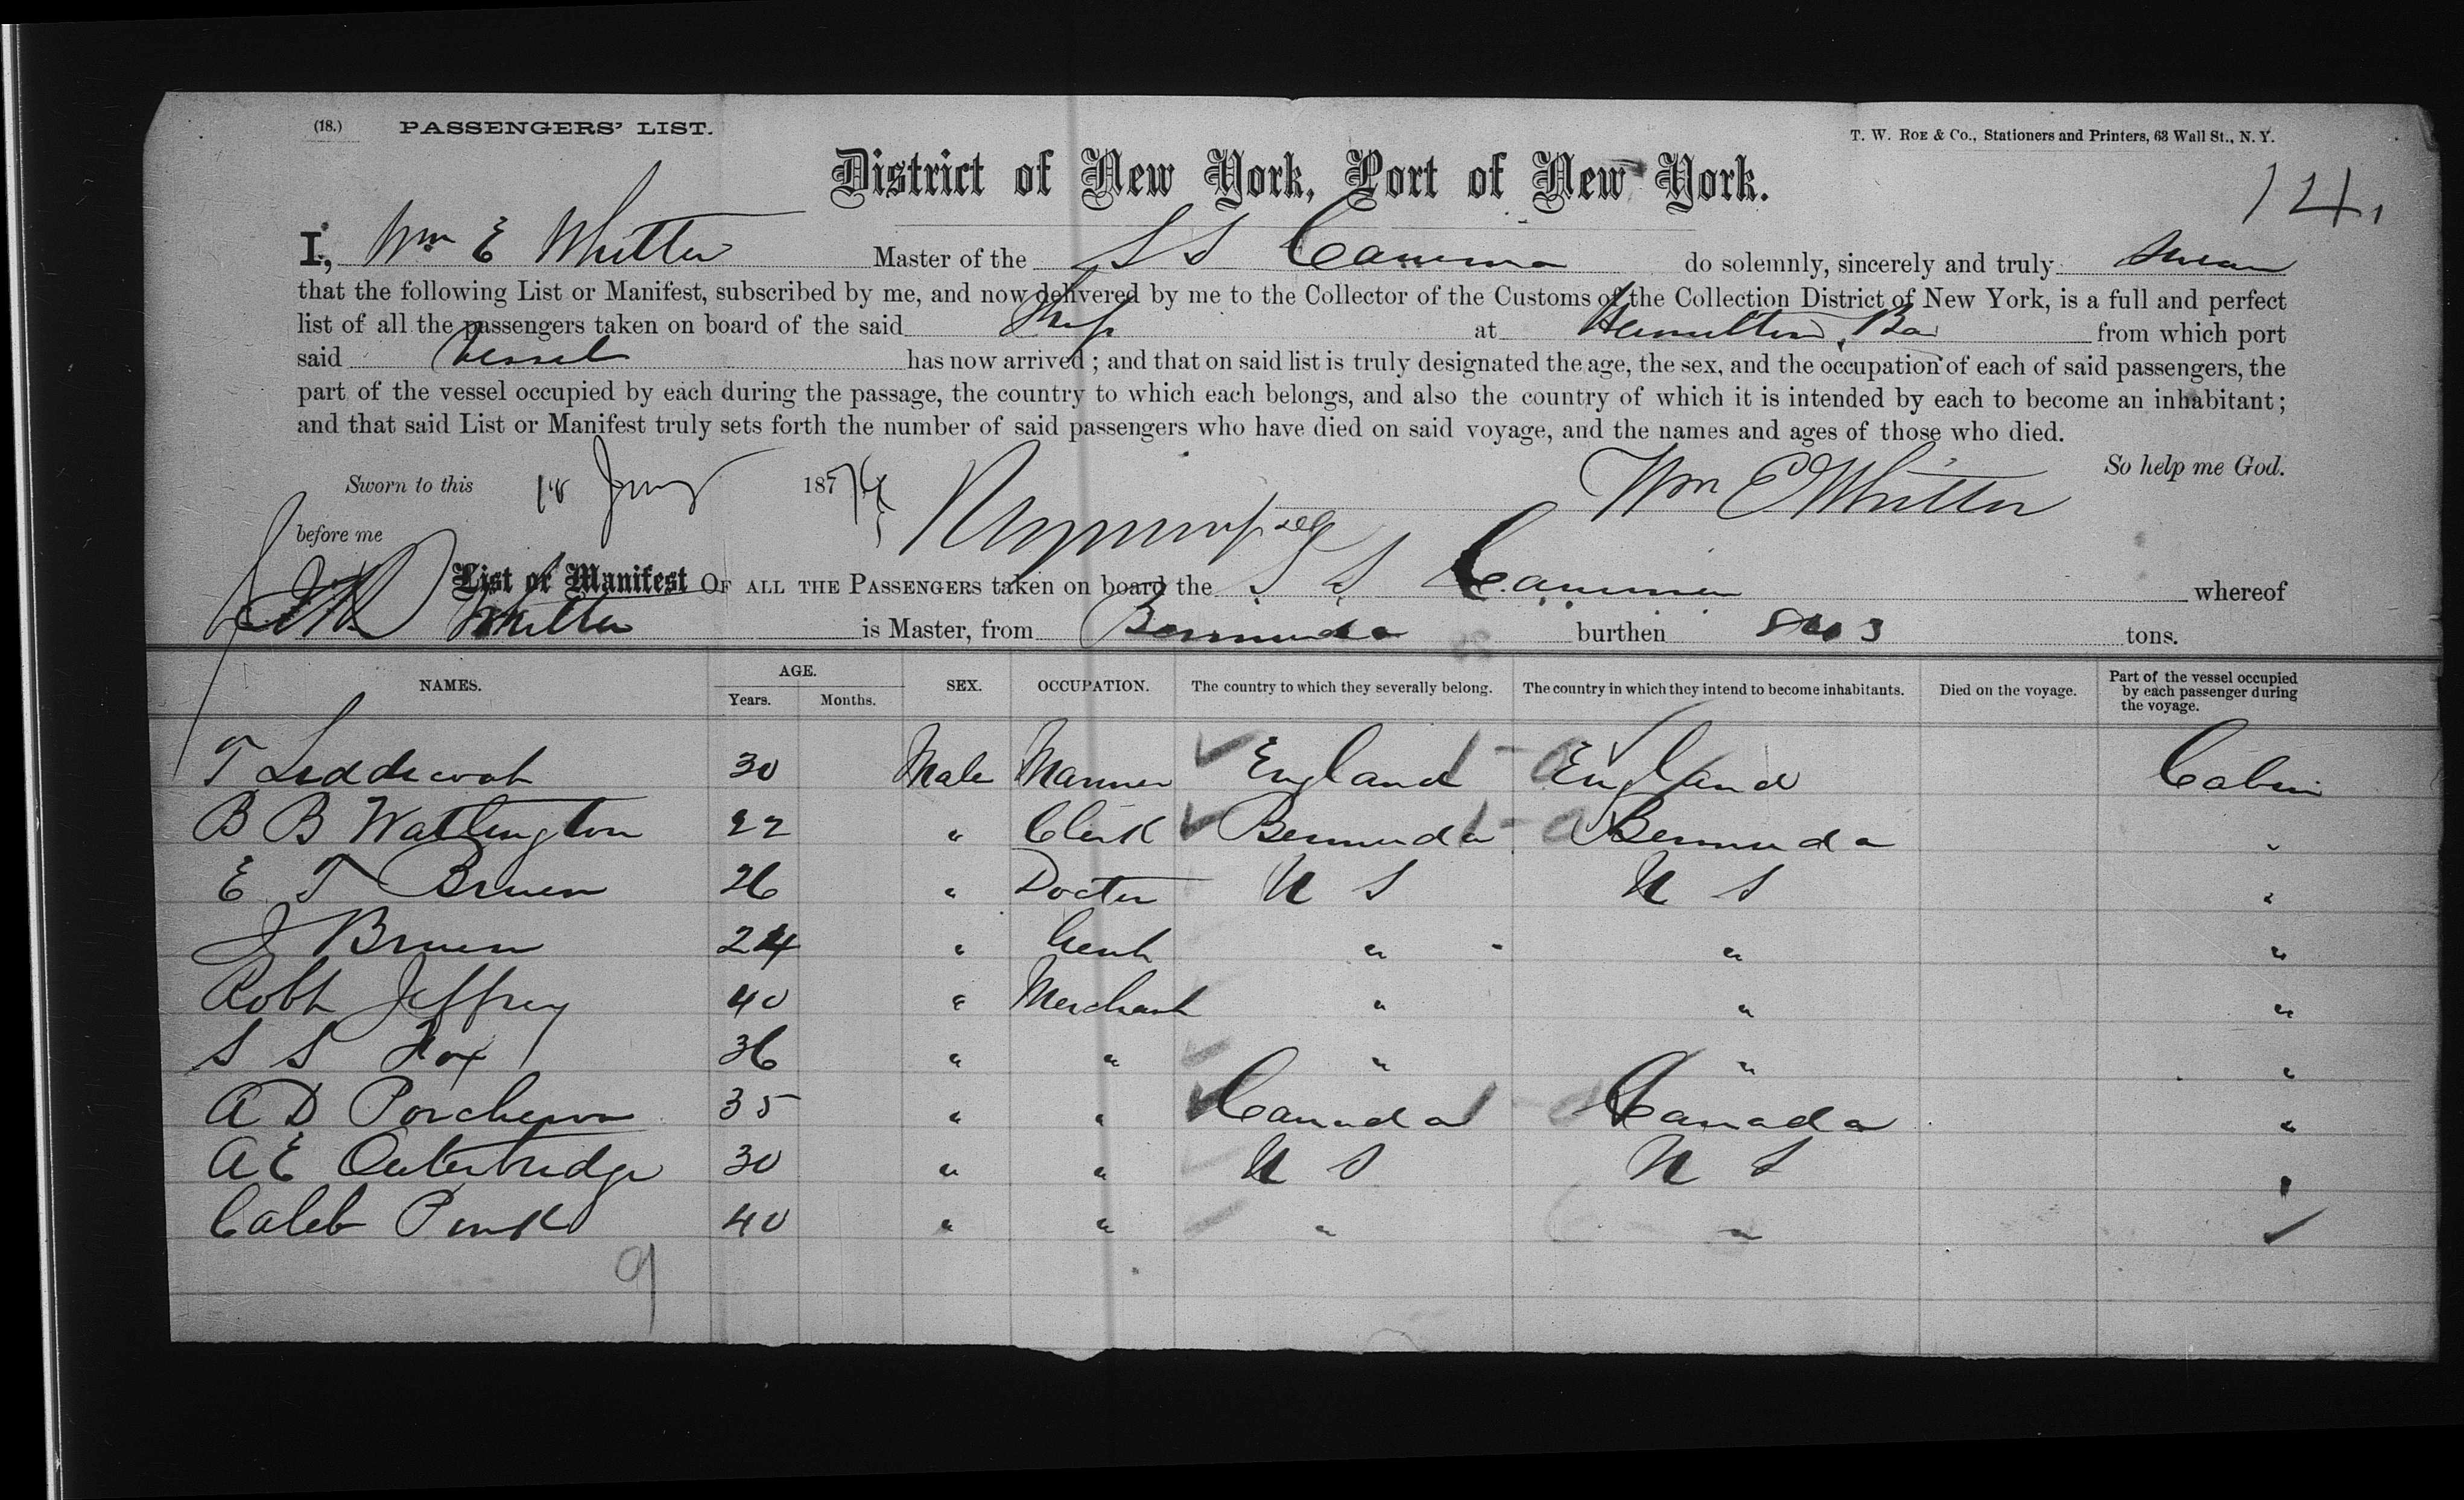 (18.) PASSENGERS' LIST. T. W. ROE & Co., Stationers and Printers, 63 Wall St., N. Y.
District of New York, Port of New York.
124
I, Wm E Whitter Master of the S S Canima do solemnly, sincerely and truly swear
that the following List or Manifest, subscribed by me, and now delivered by me to the Collector of the Customs of the Collection District of New York, is a full and perfect
list of all the passengers taken on board of the said Ship at Hamilton, Bda from which port
said Vessel has now arrived; and that on said list is truly designated the age, the sex, and the occupation of each of said passengers, the
part of the vessel occupied by each during the passage, the country to which each belongs, and also the country of which it is intended by each to become an inhabitant;
and that said List or Manifest truly sets forth the number of said passengers who have died on said voyage, and the names and ages of those who died.
So help me God.
Sworn to this 18 187
Wm E Whitter
before me
List or Manifest OF ALL THE PASSENGERS taken on board the S S Canima whereof
Whitter is Master, from Bermuda burthen tons.
NAMES. AGE. Years. Months. SEX. OCCUPATION. The country to which they severally belong. The country in which they intend to become inhabitants. Died on the voyage. Part of the vessel occupied by each passenger during the voyage.
T 30 Male Mariner England England Cabin
B B Watlington 22 " Clerk Bermuda Bermuda "
E T Bruen 26 " Doctor U S U S "
J Bruen 24 " Gent " " "
Robt Jeffrey 40 " Merchant " " "
S S Fox 36 " " " " "
A D 35 " " Canada Canada "
A E Outerbridge 30 " " U S U S "
Caleb 40 " " " "
9